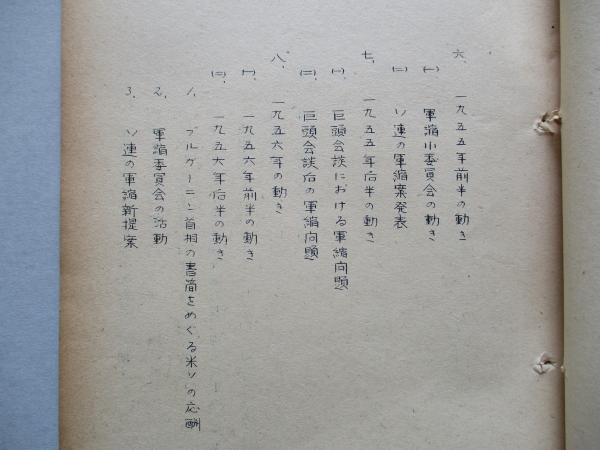 六、一九五五年前半の動き
(一) 軍縮小委員会の動き
(二) ソ連の軍縮案発表
七、一九五五年后半の動き
(一) 巨頭会談における軍縮问題
(二) 巨頭会談后の軍縮问題
八、一九五六年の動き
(一) 一九五六年前半の動き
(二) 一九五六年后半の動き
1. ブルガーニン首相の書簡をめぐる米ソの応酬
2. 軍縮委員会の活動
3. ソ連の軍縮新提案